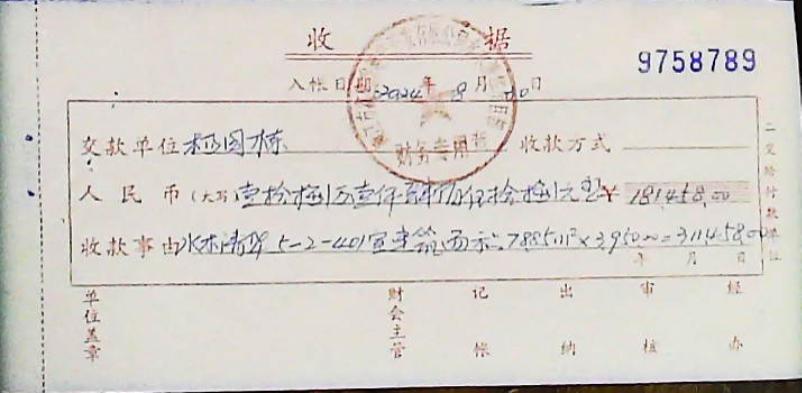 收据
9758789
入帐日期 2024年8月 日
交款单位 国栋 收款方式
人民币(大写)壹拾捌万壹仟肆佰伍拾捌元整 ¥181458.00
收款事由 水木清 5-2-401室建筑面 78.85m²×3950.00=311458.00
年 月 日
二交给付款单位
财务专用章
单位盖章 财会主管 记帐 出纳 审核 经办